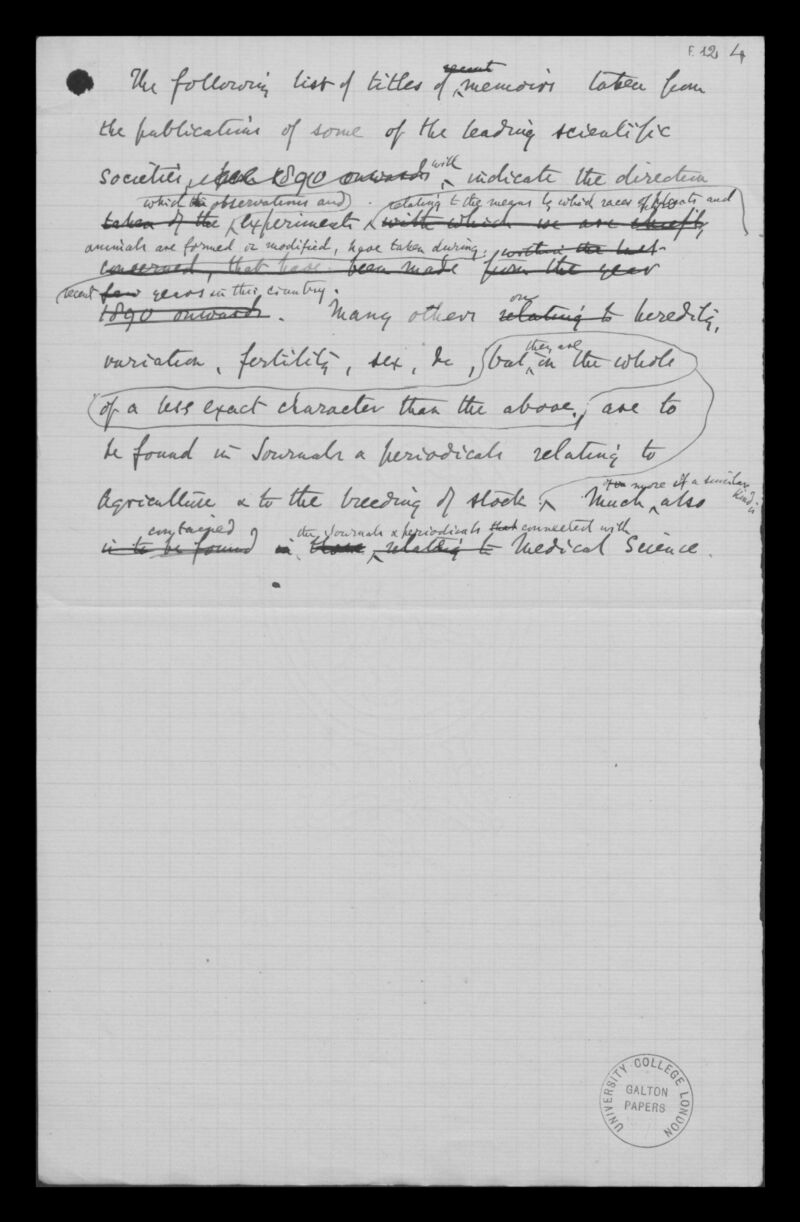 F. 12 4
recent
The following list of titles of memoirs taken from
the publications of some of the leading scientific
with
Societies, 1890 onwards indicate the direction
which the observations and relating to the means by which races of plants and
taken of the experiments with which we are chiefly
animals are formed or modified, have taken during within the last
concerned, that have been made from the year
recent few years in this country.
1890 onwards. Many others relating to heredity,
on
they are
variation, fertility, sex, &c, but in the whole
of a less exact character than the above, are to
be found in Journals & periodicals relating to
more of a similar kind is
Agriculture & to the breeding of stock. Much also
contained the Journals & periodicals that connected with
is to be found in those relating to Medical Science.
UNIVERSITY COLLEGE LONDON
GALTON
PAPERS